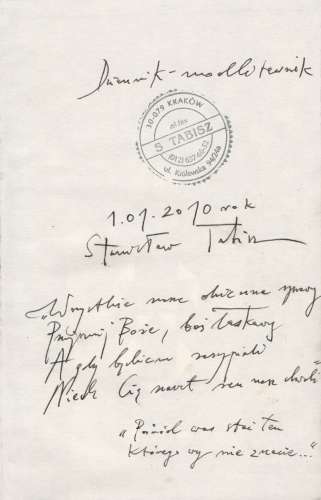 Dziennik-modlitewnik
30-079 KRAKÓW
S TABISZ
ul. Królewska 94/24a
1.01.2010 rok
Stanisław Tabisz
"Wszystkie nasze dzienne sprawy
Przyjmij Boże, boś łaskawy
A gdy będziem zasypiali
Niech Cię nawet sen nasz chwali"
"Pośród was stoi ten
którego wy nie znacie..."